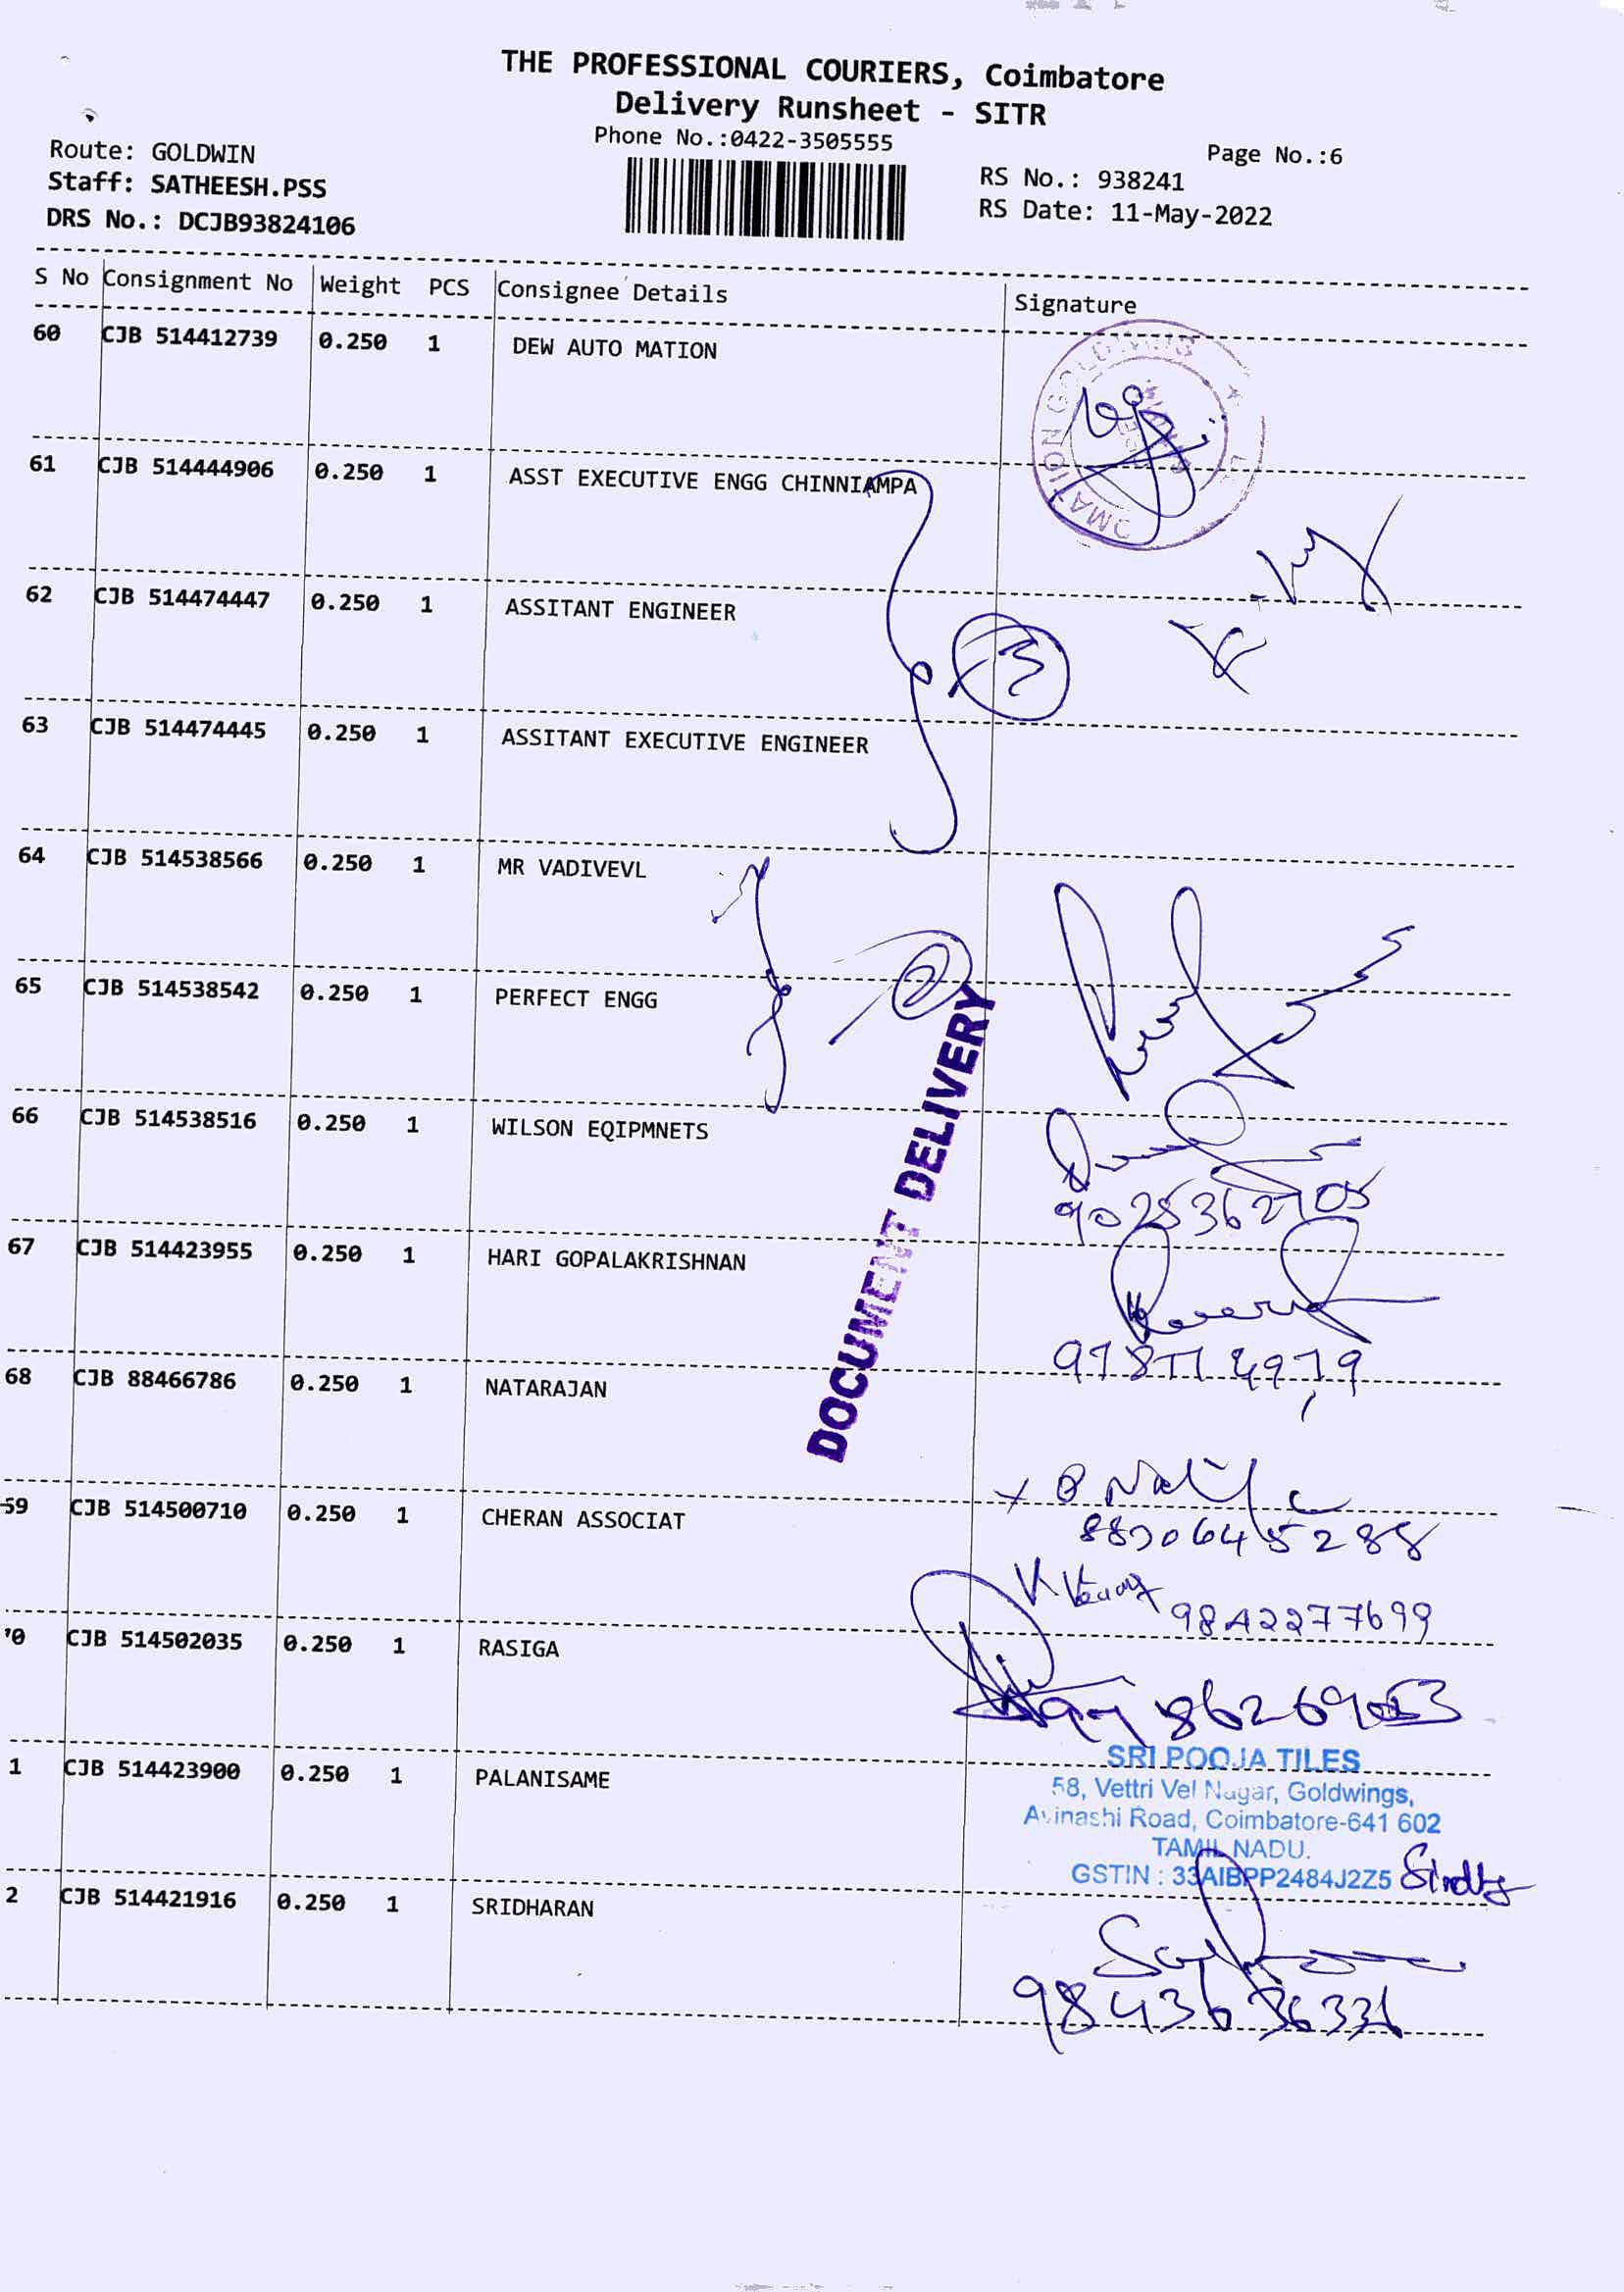 THE PROFESSIONAL COURIERS, Coimbatore
Delivery Runsheet - SITR
Phone No.:0422-3505555
Page No.:6
Route: GOLDWIN
Staff: SATHEESH.PSS
DRS No.: DCJB93824106
RS No.: 938241
RS Date: 11-May-2022
S No Consignment No Weight PCS Consignee Details Signature
60 CJB 514412739 0.250 1 DEW AUTO MATION
61 CJB 514444906 0.250 1 ASST EXECUTIVE ENGG CHINNIAMPA
62 CJB 514474447 0.250 1 ASSITANT ENGINEER
3
63 CJB 514474445 0.250 1 ASSITANT EXECUTIVE ENGINEER
64 CJB 514538566 0.250 1 MR VADIVEVL
2
65 CJB 514538542 0.250 1 PERFECT ENGG
DOCUMENT DELIVERY
66 CJB 514538516 0.250 1 WILSON EQIPMNETS
67 CJB 514423955 0.250 1 HARI GOPALAKRISHNAN
68 CJB 88466786 0.250 1 NATARAJAN
59 CJB 514500710 0.250 1 CHERAN ASSOCIAT
9842277699
70 CJB 514502035 0.250 1 RASIGA
1 CJB 514423900 0.250 1 PALANISAME
SRI POOJA TILES
58, Vettri Vel Nagar, Goldwings,
Avinashi Road, Coimbatore-641 602
TAMIL NADU.
GSTIN : 33AIBPP2484J2Z5
2 CJB 514421916 0.250 1 SRIDHARAN